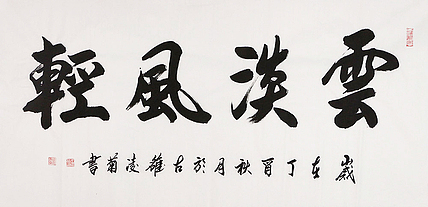 雲淡風輕
歲在丁酉秋月於古雄凌菊書